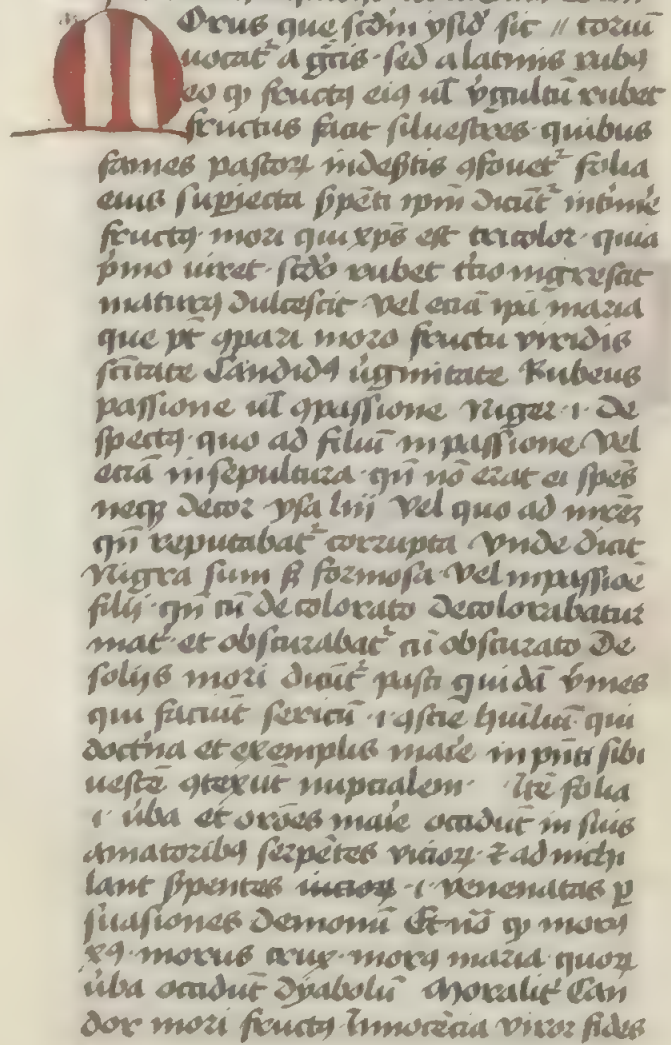 Morus que scdm ysid' sic // toruu
uocat᷑ a g̃cis · sed a latinis rubꝯ
eo ꝙ fructꝯ eiꝯ ul̃ v̾gultũ rubet
fructus facit siluestres · quibus
fames pastoꝝ indesertis ꝯfouet᷑ folia
eius supiecta s̾pẽti ip̃m dicũt᷑ int̾ime᷑
fructꝯ · mori qui xp̃s est tricolor · quia
p̾mo uiret · scđo rubet t̾tio nigrescit
maturꝯ dulcescit · Vel eciã ip̃a maria
que pt̃ ꝯpari moro fructu viridis
sc̃itate Candidꝯ u̾ginitate Rubeus
passione ul̃ ꝯpassione Niger · i · De
spectꝯ · quo ad filiũ in passione Vel
eciã in sepultura · qñ nõ erat ei spẽs
neqꝫ decor ysa liij Vel quo ad mr̃eʒ
qñ reputabat᷑ corrupta Vnde dicit
Nigra sum sꝫ formosa · Vel inpassiõe
filij · qñ cũ decolorato decolorabatur
mat᷑ · et obscurabat᷑ cũ obscurato De
folijs mori dicũt᷑ pasci quidã v̾mes
qui faciũt sericũ · i · ꝯscie huĩliũ qui
doct̾na et exemplis marie in pñti sibi
uestẽ ꝯtexũt nupcialem · Itẽ folia
i · u̾ba et orões marie occidũt in suis
amatoribꝯ serpẽtes vicioꝝ · ⁊ ad nichi
lant s̾pentes uicioꝝ · i · venenatas ꝑ
suasiones demonũ Et nõ ꝙ morꝯ
xꝯ · morus crux · morꝯ maria quoꝝ
u̾ba occidũt dyabolũ Moralit᷑ Can
dor mori fructꝯ Innocẽcia viror fides